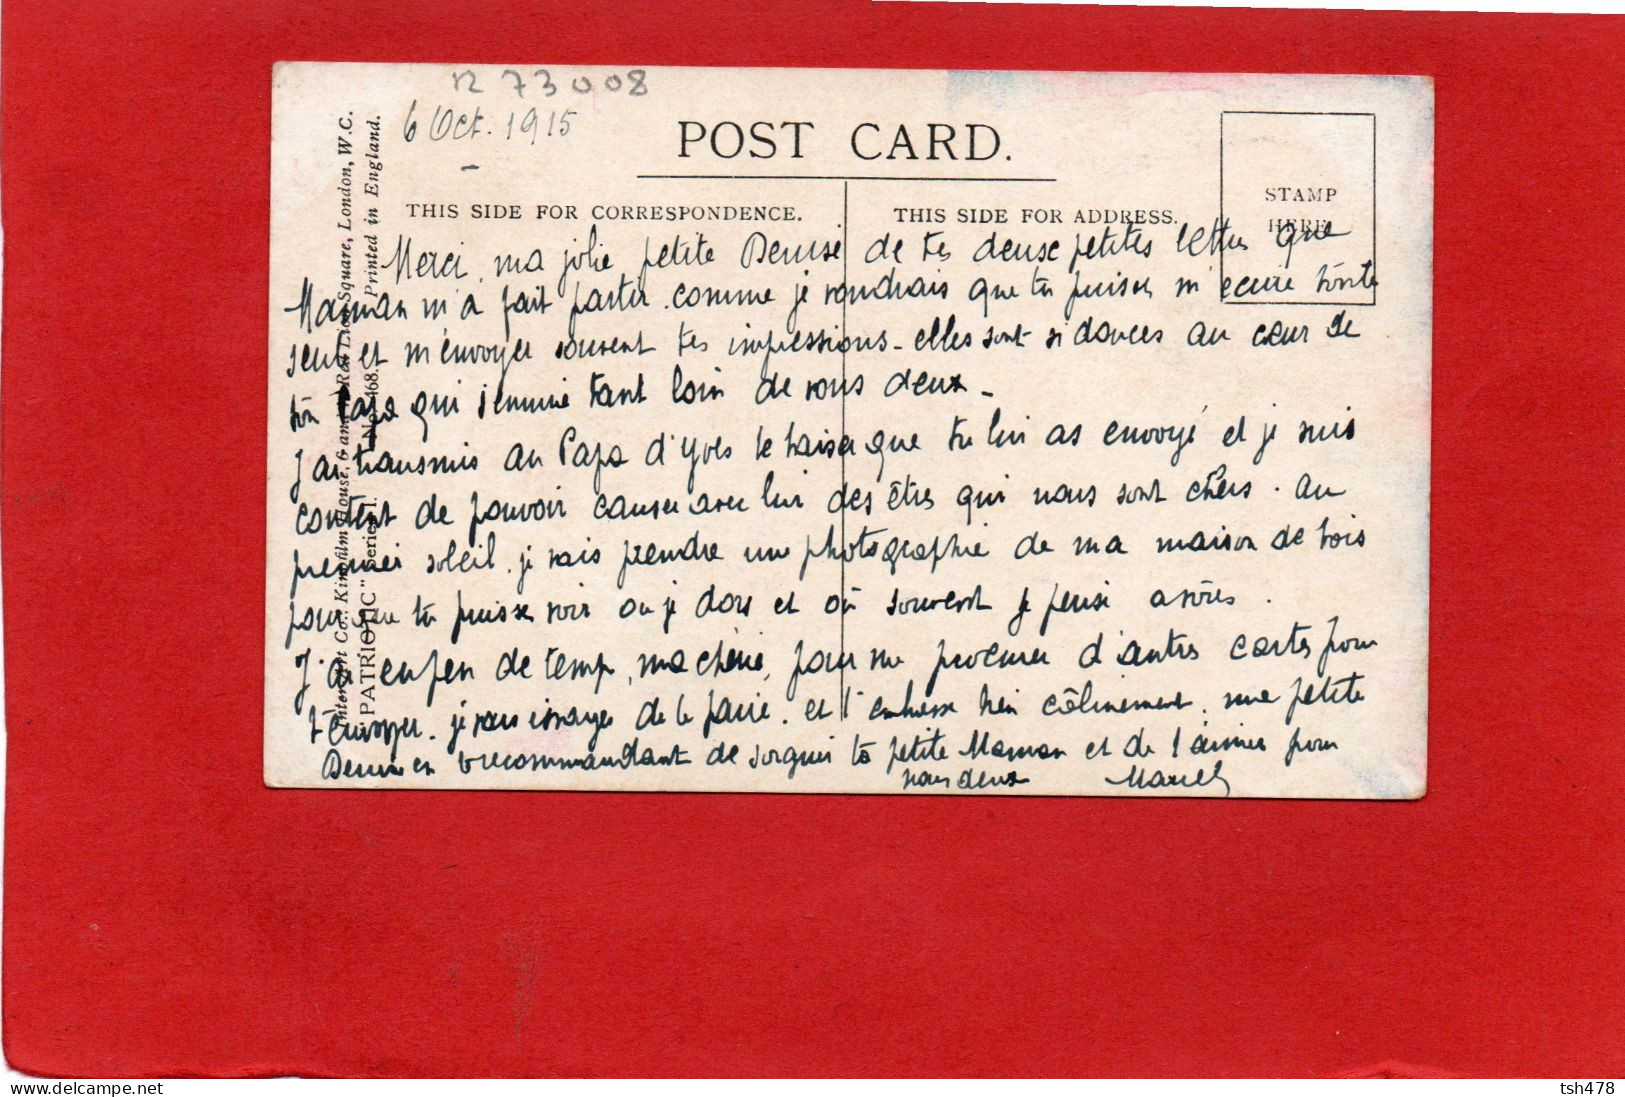 R 73008
6 Oct. 1915
POST CARD.
THIS SIDE FOR CORRESPONDENCE.
THIS SIDE FOR ADDRESS.
STAMP
HERE
Inter-Art Co., Kinofilm House, 6 and Red Lion Square, London, W.C.
Printed in England.
"PATRIOTIC" Series 168.
Merci, ma jolie petite Denise de tes deux petites lettres que
Maman m'a fait parter. comme je voudrais que tu puisses m'ecrire toute
seule et m'envoyer souvent tes impressions - elles sont si douces au cœur de
ton Papa qui s'ennuie tant loin de vous deux -
J'ai transmis au Papa d'Yves le baiser que tu lui as envoyé et je suis
content de pouvoir causer avec lui des êtres qui nous sont chers. au
premier soleil. je vais prendre une photographie de ma maison de bois
pour que tu puisses voir ou je dors et où souvent je pense a vous.
J'ai eu peu de temps, ma chérie, pour me procurer d'autres cartes pour
t'envoyer. je vais essayer de le faire. et t'embrasse bien câlinement. ma petite
Denise en te recommandant de soigner ta petite Maman et de l'aimer pour
nous deux Marcel
tsh478
www.delcampe.net